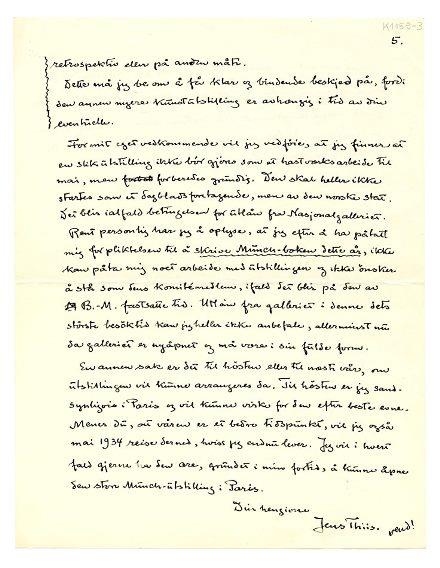 K1132-3
5.
retrospektiv eller på anden måte.
Dette må jeg be om å få klar og bindende beskjed på, fordi
den annen nyere kunstutstilling er avhængig i tid av din
eventuelle.
For mit eget vedkommende vil jeg vedføie, at jeg finner at
en slik utstilling ikke bör gjöres som et hastverksarbeide til
mai, men forberedes grundig. Den skal heller ikke
startes som et dagbladsforetagende, men av den norske stat.
Det blir ialfald betingelsen for utlån fra Nasjonalgalleriet.
Rent personlig har jeg å oplyse, at jeg efter å ha påtatt
mig forpliktelsen til å skrive Munch-boken dette år, ikke
kan påta mig noet arbeide med utstillingen og ikke önsker
å stå som dens komitémedlem, ifald det blir på den av
B.-M. fastsatte tid. Utlån fra galleriet i denne dets
störste besöktid kan jeg heller ikke anbefale, allerminst nu
da galleriet er nyåpnet og må være i sin fulde form.
En annen sak er det til hösten eller til næste vår, om
utstillingen vil kunne arrangeres da. Til hösten er jeg sand-
synligvis i Paris og vil kunne virke for den efter beste evne.
Mener du, at våren er et bedre tidspunkt, vil jeg også
mai 1934 reise derned, hvis jeg endnu lever. Jeg vil i hvert
fald gjerne ha den ære, grundet i min fortid, å kunne åpne
den store Munch-utstilling i Paris.
Din hengivne
Jens Thiis.
vend!